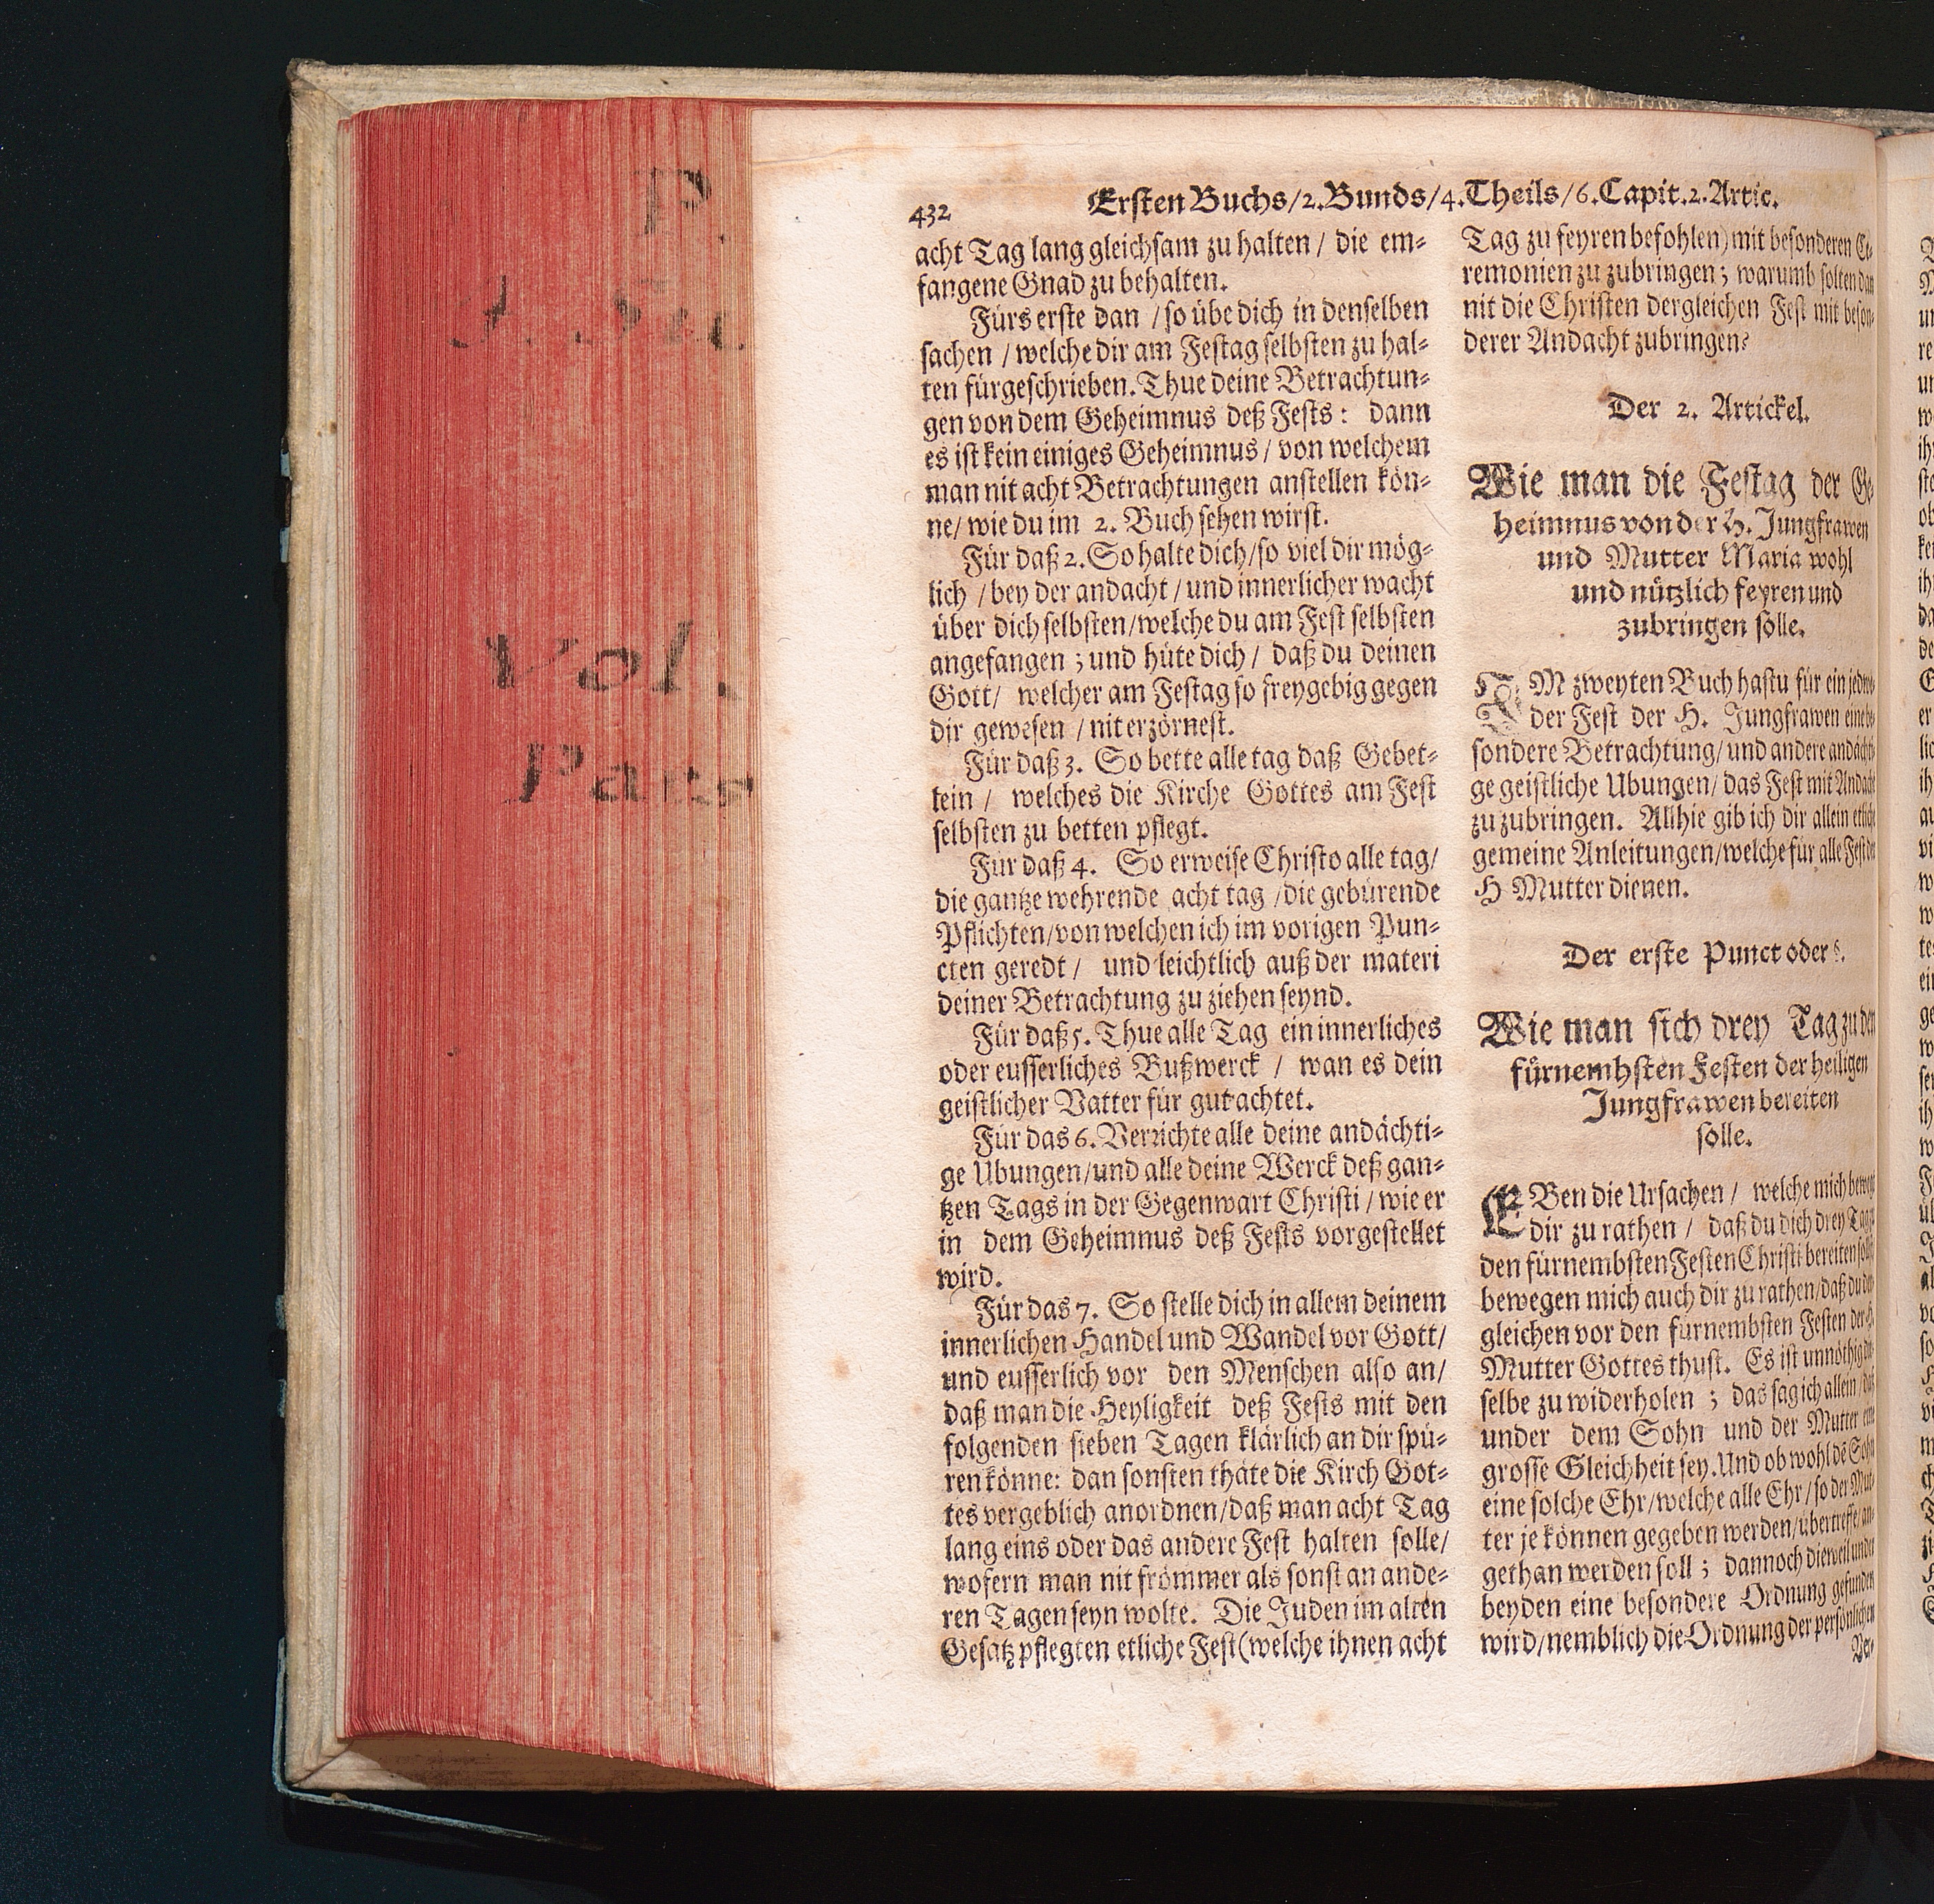 432
Ersten Buchs/2.Bunds/4.Theils/6.Capit.2.Artic.
acht Tag lang gleichsam zu halten / die em-
fangene Gnad zu behalten.
Fürs erste dan / so übe dich in denselben
sachen / welche dir am Festag selbsten zu hal-
ten fürgeschrieben. Thue deine Betrachtun-
gen von dem Geheimnus deß Fests: dann
es ist kein einiges Geheimnus / von welchem
man nit acht Betrachtungen anstellen kön-
ne/ wie du im 2. Buch sehen wirst.
Für daß 2. So halte dich/so viel dir mög-
lich / bey der andacht / und innerlicher wacht
über dich selbsten/welche du am Fest selbsten
angefangen ; und hüte dich / daß du deinen
Gott/ welcher am Festag so freygebig gegen
dir gewesen / nit erzörnest.
Für daß 3. So bette alle tag daß Gebet-
lein / welches die Kirche Gottes am Fest
selbsten zu betten pflegt.
Für daß 4. So erweise Christo alle tag/
die gantze wehrende acht tag / die gebürende
Pflichten/von welchen ich im vorigen Pun-
cten geredt / und leichtlich auß der materi
deiner Betrachtung zu ziehen seynd.
Für daß 5. Thue alle Tag ein innerliches
oder eusserliches Bußwerck / wan es dein
geistlicher Vatter für gut achtet.
Für das 6. Verrichte alle deine andächti-
ge Ubungen/und alle deine Werck deß gan-
tzen Tags in der Gegenwart Christi / wie er
in dem Geheimnus deß Fests vorgestellet
wird.
Für das 7. So stelle dich in allem deinem
innerlichen Handel und Wandel vor Gott/
und eusserlich vor den Menschen also an/
daß man die Heyligkeit deß Fests mit den
folgenden sieben Tagen klärlich an dir spü-
ren könne: dan sonsten thäte die Kirch Got-
tes vergeblich anordnen/daß man acht Tag
lang eins oder das andere Fest halten solle/
wofern man nit frömmer als sonst an ande-
ren Tagen seyn wolte. Die Juden im alten
Gesatz pflegten etliche Fest (welche ihnen acht
Tag zu feyren befohlen) mit besonderen Ce-
remonien zu zubringen ; warumb solten dan
nit die Christen dergleichen Fest mit beson-
derer Andacht zubringen?
Der 2. Artickel.
Wie man die Festag der Ge-
heimnus von der H. Jungfrawen
und Mutter Maria wohl
und nützlich feyren und
zubringen solle.
IM zweyten Buch hastu für ein jedwe-
der Fest der H. Jungfrawen eine be-
sondere Betrachtung/ und andere andächti-
ge geistliche Ubungen/ das Fest mit Andacht
zu zubringen. Allhie gib ich dir allein etliche
gemeine Anleitungen/welche für alle Fest der
H Mutter dienen.
Der erste Punct oder §.
Wie man sich drey Tag zu den
fürnembsten Festen der heiligen
Jungfrawen bereiten
solle.
EBen die Ursachen / welche mich bewegt
dir zu rathen / daß du dich drey Tag zu
den fürnembsten Festen Christi bereiten sollst
bewegen mich auch dir zu rathen/daß du
gleichen vor den fürnembsten Festen der H.
Mutter Gottes thust. Es ist unnöthig
selbe zu widerholen ; das sag ich allein / daß
under dem Sohn und der Mutter eine
grosse Gleichheit sey. Und ob wohl dē Sohn
eine solche Ehr/welche alle Ehr / so der Mut-
ter je können gegeben werden/übertreffe/an-
gethan werden soll ; dannoch dieweil under
beyden eine besondere Ordnung gefunden
wird/nemblich die Ordnung der persönlichen
Ver-
P.
Vol.
Pars